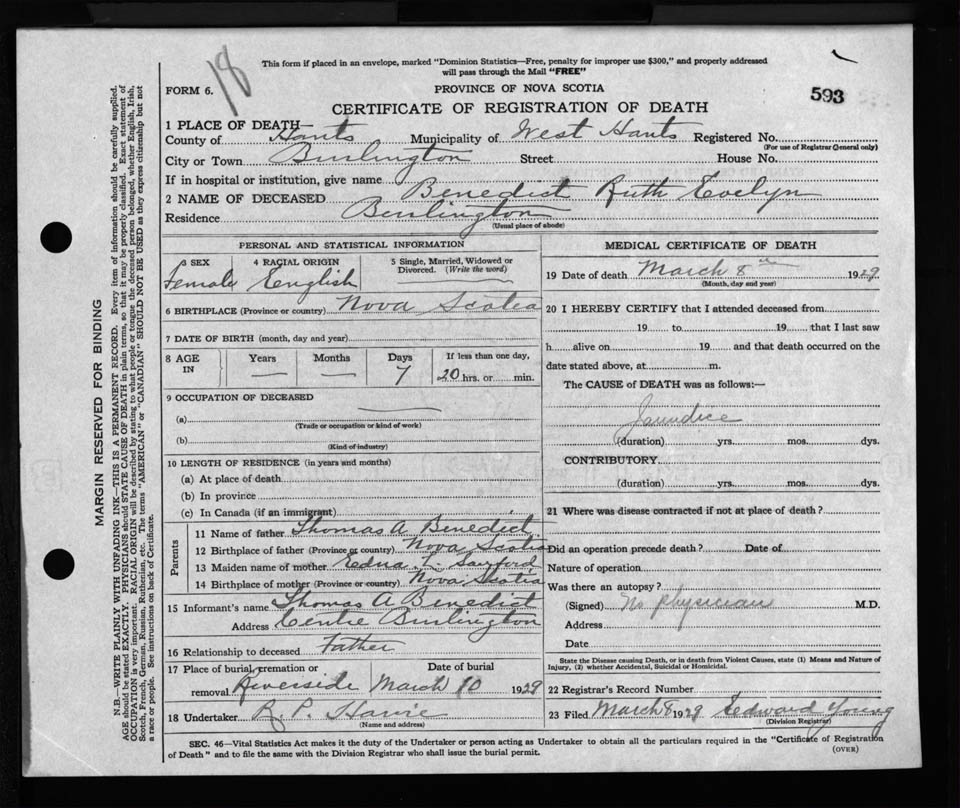 18
This form if placed in an envelope, marked "Dominion Statistics—Free, penalty for improper use $300," and properly addressed
will pass through the Mail "FREE"
FORM 6.
PROVINCE OF NOVA SCOTIA
593
CERTIFICATE OF REGISTRATION OF DEATH
1 PLACE OF DEATH—
County of Hants Municipality of West Hants Registered No.
(For use of Registrar General only)
City or Town Burlington Street House No.
If in hospital or institution, give name
2 NAME OF DECEASED Benedict Ruth Evelyn
Residence Burlington
(Usual place of abode)
PERSONAL AND STATISTICAL INFORMATION
3 SEX 4 RACIAL ORIGIN 5 Single, Married, Widowed or
Divorced. (Write the word)
Female English
6 BIRTHPLACE (Province or country) Nova Scotia
7 DATE OF BIRTH (month, day and year)
8 AGE Years Months Days If less than one day,
IN — — 7 20 hrs. or min.
9 OCCUPATION OF DECEASED
(a)
(Trade or occupation or kind of work)
(b)
(Kind of industry)
10 LENGTH OF RESIDENCE (in years and months)
(a) At place of death
(b) In province
(c) In Canada (if an immigrant)
Parents
11 Name of father Thomas A Benedict
12 Birthplace of father (Province or country) Nova Scotia
13 Maiden name of mother Edna L Sanford
14 Birthplace of mother (Province or country) Nova Scotia
15 Informant's name Thomas A Benedict
Address Centre Burlington
16 Relationship to deceased Father
17 Place of burial, cremation or Date of burial
removal Riverside March 10 1929
18 Undertaker R. P. Harvie
(Name and address)
MEDICAL CERTIFICATE OF DEATH
19 Date of death March 8th 1929
(Month, day and year)
20 I HEREBY CERTIFY that I attended deceased from
19 to 19 that I last saw
h alive on 19 and that death occurred on the
date stated above, at m.
The CAUSE of DEATH was as follows:—
Jaundice
(duration) yrs. mos. dys.
CONTRIBUTORY
(duration) yrs. mos. dys.
21 Where was disease contracted if not at place of death?
Did an operation precede death? Date of
Nature of operation
Was there an autopsy?
(Signed) No physician M.D.
Address
Date
State the Disease causing Death, or in death from Violent Causes, state (1) Means and Nature of
Injury, (2) whether Accidental, Suicidal or Homicidal.
22 Registrar's Record Number
23 Filed March 8 1929 Edward Young
(Division Registrar)
SEC. 46—Vital Statistics Act makes it the duty of the Undertaker or person acting as Undertaker to obtain all the particulars required in the "Certificate of Registration
of Death" and to file the same with the Division Registrar who shall issue the burial permit.
(OVER)
MARGIN RESERVED FOR BINDING
N.B.—WRITE PLAINLY WITH UNFADING INK—THIS IS A PERMANENT RECORD. Every item of information should be carefully supplied.
AGE should be stated EXACTLY. PHYSICIANS should STATE CAUSE OF DEATH in plain terms, so that it may be properly classified. Exact statement of
OCCUPATION is very important. RACIAL ORIGIN will be described by stating to what people or tongue the deceased person belonged, whether English, Irish,
Scotch, French, German, Russian, Ruthenian, etc. The terms "AMERICAN" or "CANADIAN" SHOULD NOT BE USED as they express citizenship but not
a race or people. See instructions on back of Certificate.